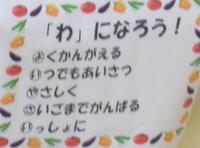 「わ」になろう！
よくかんがえる
いつでもあいさつ
やさしく
さいごまでがんばる
いっしょに